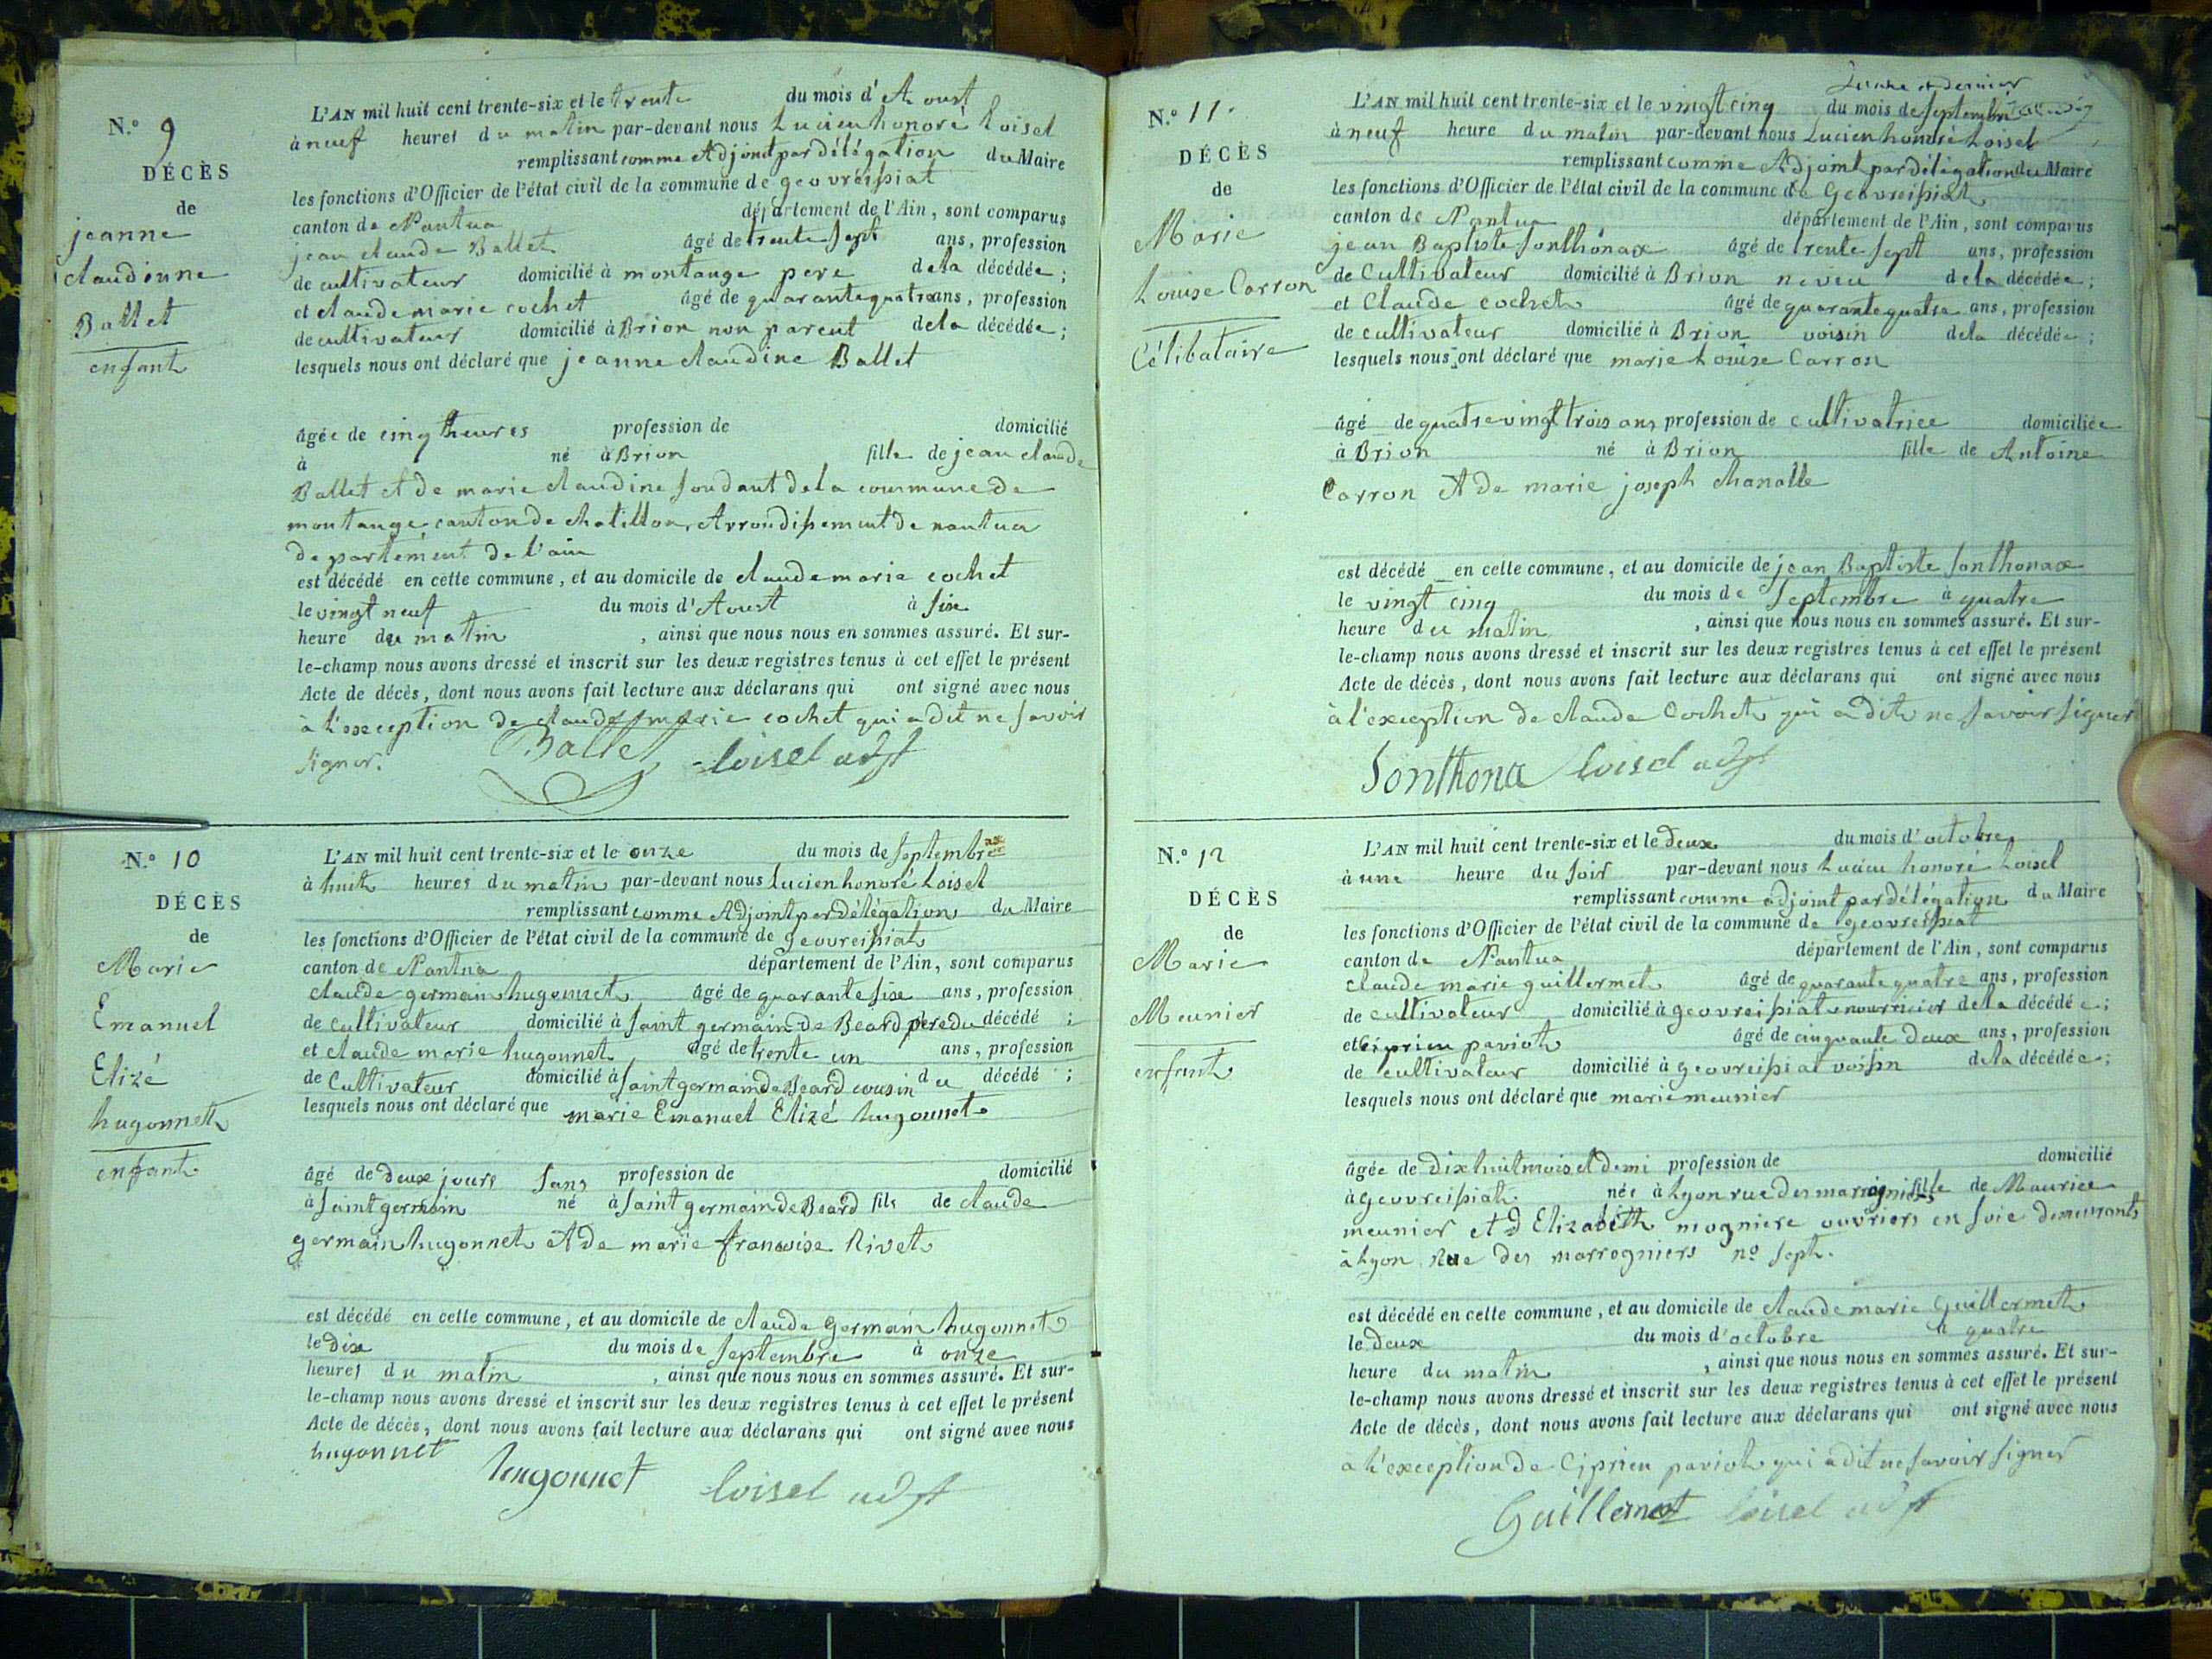 N.° 9
DÉCÈS
de
jeanne
claudinne
Ballet
enfant
L'AN mil huit cent trente-six et le trente du mois d'Aoust
à neuf heures du matin par-devant nous Lucien honoré Loisel
remplissant comme Adjoint par délégation du Maire
les fonctions d'Officier de l'état civil de la commune de geovreissiat
canton de Nantua département de l'Ain, sont comparus
jean claude Ballet âgé de trente sept ans, profession
de cultivateur domicilié à montange pere de la décédée ;
et claude marie cochet âgé de quarante quatre ans, profession
de cultivateur domicilié à Brion non parent de la décédée ;
lesquels nous ont déclaré que jeanne claudine Ballet
âgée de cinq heures profession de domicilié
à né à Brion fille de jean claude
Ballet et de marie claudine fondant de la commune de
montange canton de chatillon, Arrondissement de nantua
departement de l'ain
est décédé en cette commune, et au domicile de claude marie cochet
le vingt neuf du mois d'Aoust à six
heure du matin , ainsi que nous nous en sommes assuré. Et sur-
le-champ nous avons dressé et inscrit sur les deux registres tenus à cet effet le présent
Acte de décès, dont nous avons fait lecture aux déclarans qui ont signé avec nous
à l'exception de claude marie cochet qui a dit ne savoir
signer.
Ballet Loisel adjt
N.° 10
DÉCÈS
de
Marie
Emanuel
Elizé
hugonnet
enfant
L'AN mil huit cent trente-six et le onze du mois de septembre
à huit heures du matin par-devant nous Lucien honoré Loisel
remplissant comme Adjoint par délégation du Maire
les fonctions d'Officier de l'état civil de la commune de geovreissiat
canton de Nantua département de l'Ain, sont comparus
claude germain hugonnet âgé de quarante six ans, profession
de cultivateur domicilié à saint germain de Beard pere du décédé ;
et claude marie hugonnet âgé de trente un ans, profession
de Cultivateur domicilié à saint germain de Beard cousin du décédé ;
lesquels nous ont déclaré que marie Emanuel Elizé hugonnet
âgé de deux jours sans profession de domicilié
à saint germain né à saint germain de Beard fils de claude
germain hugonnet et de marie francoise Rivet
est décédé en cette commune, et au domicile de claude Germain hugonnet
le dix du mois de septembre à onze
heures du matin , ainsi que nous nous en sommes assuré. Et sur-
le-champ nous avons dressé et inscrit sur les deux registres tenus à cet effet le présent
Acte de décès, dont nous avons fait lecture aux déclarans qui ont signé avec nous
hugonnet hugonnet Loisel adjt
N.° 11.
DÉCÈS
de
Marie
Louise Carron
Célibataire
et dernier
L'AN mil huit cent trente-six et le vingt cinq du mois de septembre
à neuf heure du matin par-devant nous Lucien honoré Loisel
remplissant comme Adjoint par délégation du Maire
les fonctions d'Officier de l'état civil de la commune de Geovreissiat
canton de Nantua département de l'Ain, sont comparus
jean Baptiste Sonthonax âgé de trente sept ans, profession
de Cultivateur domicilié à Brion neveu de la décédée ;
et Claude cochet âgé de quarante quatre ans, profession
de cultivateur domicilié à Brion voisin de la décédée ;
lesquels nous ont déclaré que marie Louise Carron
âgé de quatre vingt trois ans profession de cultivatrice domiciliée
à Brion né à Brion fille de Antoine
Carron et de marie joseph chanalle
est décédé en cette commune, et au domicile de jean Baptiste Sonthonax
le vingt cinq du mois de Septembre à quatre
heure du matin , ainsi que nous nous en sommes assuré. Et sur-
le-champ nous avons dressé et inscrit sur les deux registres tenus à cet effet le présent
Acte de décès, dont nous avons fait lecture aux déclarans qui ont signé avec nous
à l'exception de claude Cochet qui a dit ne savoir signer
Sonthona Loisel adjt
N.° 12
DÉCÈS
de
Marie
Meunier
enfant
L'AN mil huit cent trente-six et le deux du mois d'octobre
à une heure du soir par-devant nous Lucien honoré Loisel
remplissant comme adjoint par délégation du Maire
les fonctions d'Officier de l'état civil de la commune de geovreissiat
canton de Nantua département de l'Ain, sont comparus
claude marie guillermet âgé de quarante quatre ans, profession
de cultivateur domicilié à geovreissiat nourricier de la décédée ;
et Ciprien paviot âgé de cinquante deux ans, profession
de cultivateur domicilié à geovreissiat voisin de la décédée ;
lesquels nous ont déclaré que marie meunier
âgée de dix huit mois et demi profession de domicilié
à geovreissiat née à Lyon rue des marrogniers fille de Maurice
meunier et d Elizabeth mogniere ouvriers en soie demeurant
à Lyon Rue des marrogniers n° sept.
est décédé en cette commune, et au domicile de claude marie Guillermet
le deux du mois d'octobre à quatre
heure du matin , ainsi que nous nous en sommes assuré. Et sur-
le-champ nous avons dressé et inscrit sur les deux registres tenus à cet effet le présent
Acte de décès, dont nous avons fait lecture aux déclarans qui ont signé avec nous
a l'exception de Ciprien paviot qui a dit ne savoir signer
Guillermet Loisel adjt